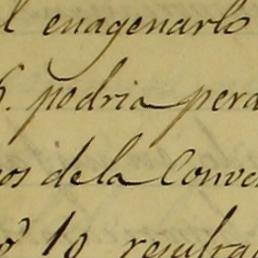 l enagenarlo
6. podria perd
os dela Conve
1º resultra